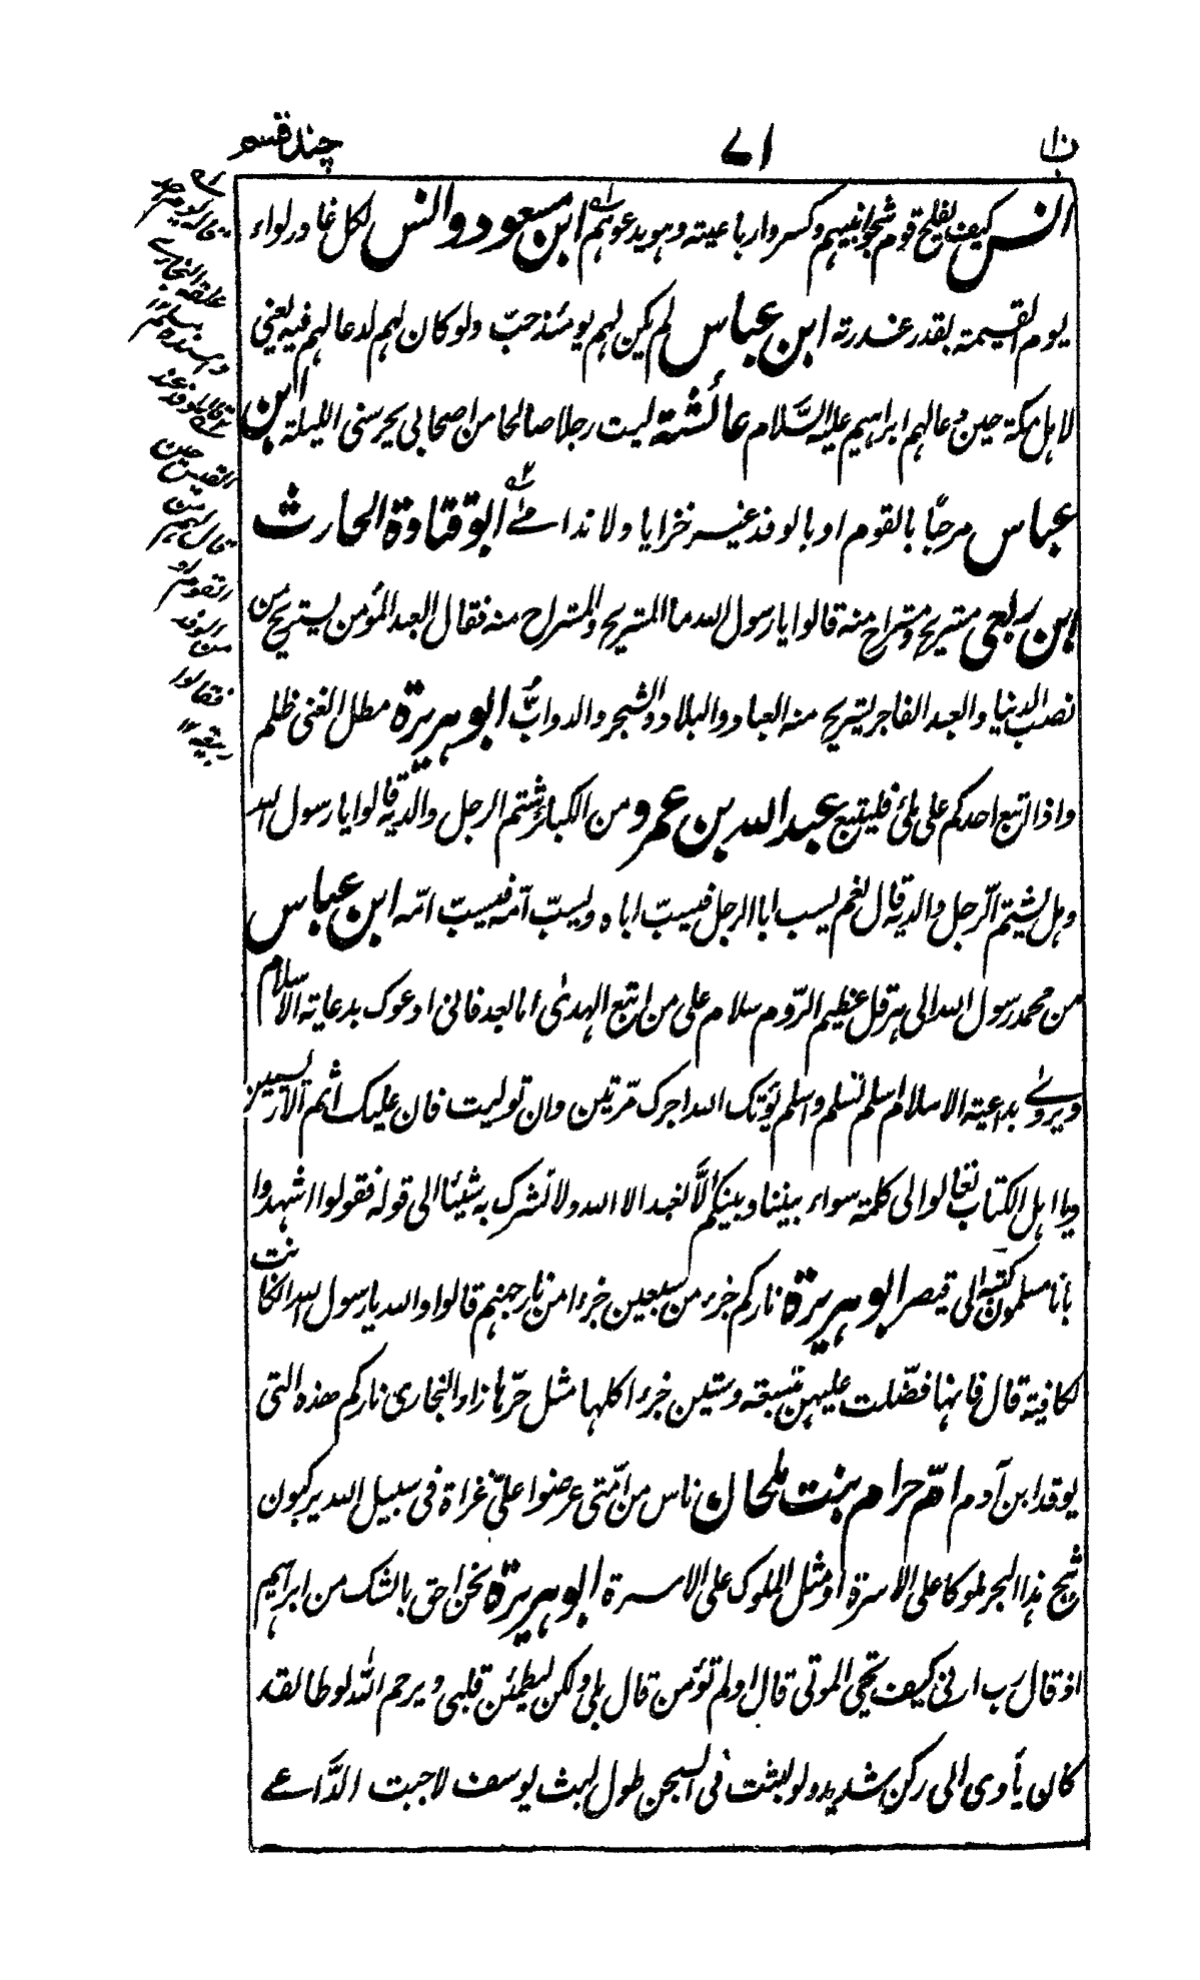 چند قسم
۷۱
انس كيف يفلح قوم شجوا نبيهم وكسروا رباعيته وهو يدعوهم ابن مسعود و انس لكل غادر لواء
يوم القيمة بقدر غدرته ابن عباس لم يكن لهم يومئذ حبّ ولو كان لهم لدعا لهم فيه يعنى
لاهل مكة حين دعا لهم ابراهيم عليه السَّلام عائشة ليت رجلا صالحا من اصحابى يحرسنى الليلة ابن
عباس مرحبًا بالقوم او بالوفد غير خزايا ولا ندامے ابو قتادة الحارث
ابن ربعى مستريح ومستراح منه قالوا يا رسول الله ما المستريح والمستراح منه فقال العبد المؤمن يستريح من
نصب الدنيا والعبد الفاجر يستريح منه العباد والبلاد والشجر والدوابُّ ابو هريرة مطل الغنى ظلم
واذا اتبع احدكم على ملئ فليتبع عبد الله بن عمرو من الكبائر شتم الرجل والديه قالوا يا رسول الله
وهل يشتم الرّجل والديه قال نعم يسب ابا الرجل فيسبّ اباه ويسبّ امّه فيسبّ امّه ابن عباس
من محمد رسول الله الى هرقل عظيم الرّوم سلام على من اتبع الهدىٰ اما بعد فانى ادعوك بدعاية الاسلام
ويروىٰ بداعية الاسلام اسلم تسلم واسلم يؤتك الله اجرك مرّتين وان توليت فان عليك اثم الاريسيين
ويا اهل الكتاب تعالوا الى كلمة سواء بيننا وبينكم ألَّا نعبد الا الله ولا نشرك به شيئا الى قوله فقولوا اشهدوا
بانا مسلمون كتبه الى قيصر ابو هريرة ناركم جزء من سبعين جزءا من نار جهنم قالوا والله يا رسول الله ان كانت
لكافية قال فانها فضّلت عليهن بتسعة وستين جزءا كلها مثل حرّها زاد البخارى ناركم هذه التى
يوقد ابن آدم امّ حرام بنت ملحان ناس من امّتى عرضوا علىّ غزاة فى سبيل الله يركبون
ثبج هذا البحر ملوكا على الاسرة او مثل الملوك على الاسرة ابو هريرة نحن احق بالشك من ابراهيم
اذ قال رب ارنى كيف تحيى الموتى قال او لم تؤمن قال بلى ولكن ليطمئن قلبى ويرحم الله لوطا لقد
كان يأوى الى ركن شديد ولو لبثت فى السجن طول لبث يوسف لاجبت الدَّاعے